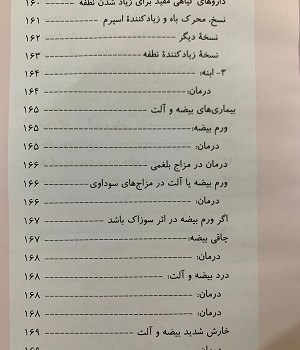 داروهای گیاهی مفید برای زیاد شدن نطفه ------- ۱۶۰
نسخ، محرک باه و زیادکنندهٔ اسپرم ---------- ۱۶۱
نسخهٔ دیگر ----------------------------- ۱۶۲
نسخهٔ زیادکنندهٔ نطفه ------------------- ۱۶۳
۳- ابنه: ------------------------------- ۱۶۴
درمان: ------------------------------ ۱۶۴
بیماری‌های بیضه و آلت ------------------- ۱۶۵
ورم بیضه: ----------------------------- ۱۶۵
درمان: ------------------------------ ۱۶۵
درمان در مزاج بلغمی ------------------- ۱۶۶
ورم بیضه یا آلت در مزاج‌های سوداوی ------- ۱۶۶
درمان: ------------------------------ ۱۶۶
اگر ورم بیضه در اثر سوزاک باشد ----------- ۱۶۷
چاقی بیضه: ---------------------------- ۱۶۷
درمان: ------------------------------ ۱۶۸
درد بیضه و آلت: ------------------------ ۱۶۸
درمان: ------------------------------ ۱۶۸
درمان: ------------------------------ ۱۶۸
خارش شدید بیضه و آلت ------------------ ۱۶۹
درمان: ------------------------------ ۱۶۹